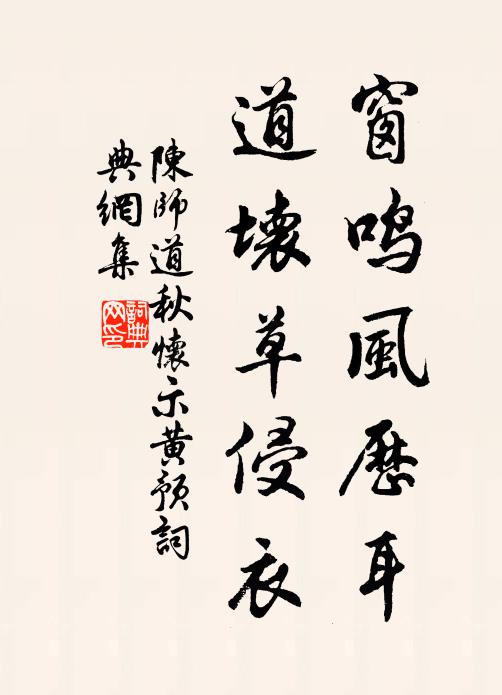 窗鳴風歷耳
道壞草侵衣
陳師道秋懷示黃預詞
典網集
詞典
网印